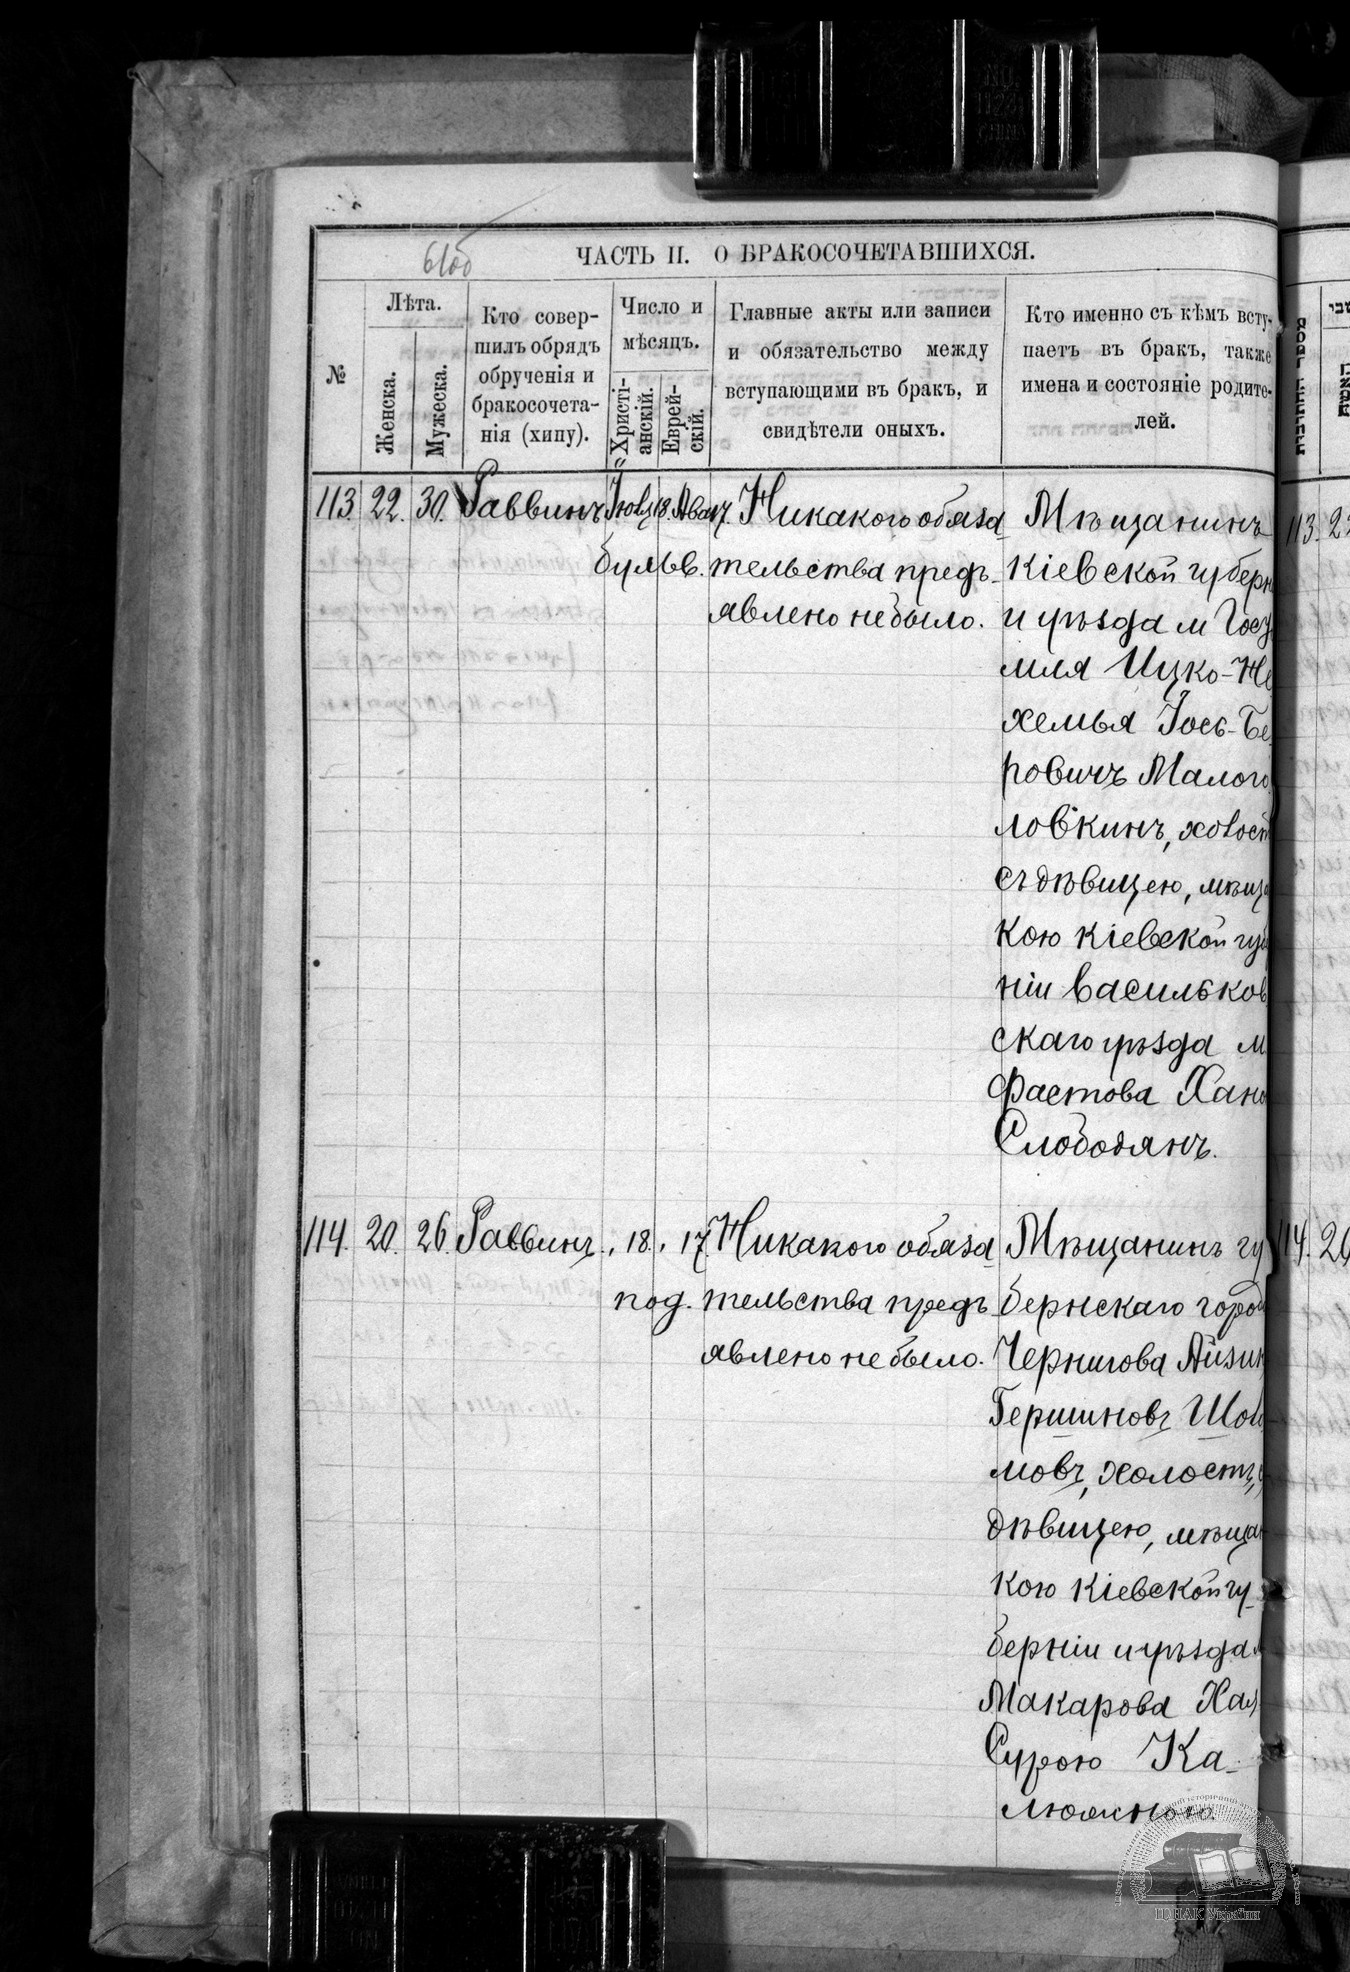 61об
ЧАСТЬ II. О БРАКОСОЧЕТАВШИХСЯ.
№
Лѣта.
Женска.
Мужеска.
Кто совер-
шилъ обрядъ
обрученія и
бракосочета-
нія (хипу).
Число и
мѣсяцъ.
Христі-
анскій.
Еврей-
скій.
Главные акты или записи
и обязательство между
вступающими въ бракъ, и
свидѣтели оныхъ.
Кто именно съ кѣмъ всту-
паетъ въ бракъ, также
имена и состояніе родите-
лей.
113. 22. 30. Раввинъ Іюля 18. Ава 17. Никакого обяза- Мѣщанинъ
бульв. тельства предъ- Кіевской губерн
явлено не было. и уѣзда м Гост
мля Ицко-Не
хемья Іось-Бе
ровичъ Малого
ловкинъ, холост
съ дѣвицею, мѣща
кою Кіевской губ
ніи Васильков
скаго уѣзда м
Фастова Хано
Слободянъ.
114. 20. 26. Раввинъ „ 18. „ 17. Никакого обяза- Мѣщанинъ гу
под. тельства предъ- бернскаго город
явлено не было. Чернигова Айзик
Гершиновъ Шоло
мовъ, холостъ, с
дѣвицею, мѣщан
кою Кіевской гу-
берніи и уѣзда м
Макарова Хая
Сурою Ка-
люжною.
113. 22
114. 20
מספר החתונות
ЦДІАК України